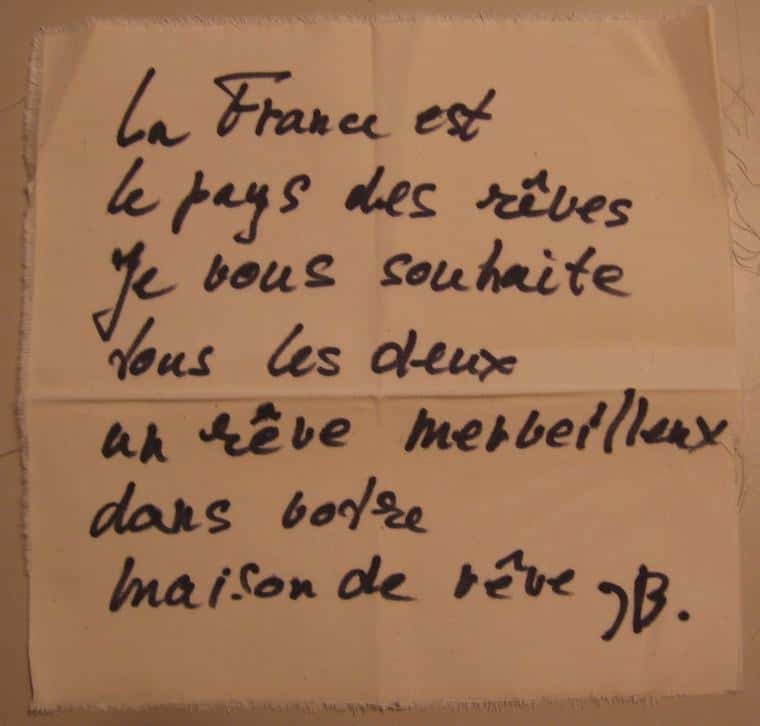 La France est
le pays des rêves
Je vous souhaite
tous les deux
un rêve merveilleux
dans votre
maison de rêve JB.